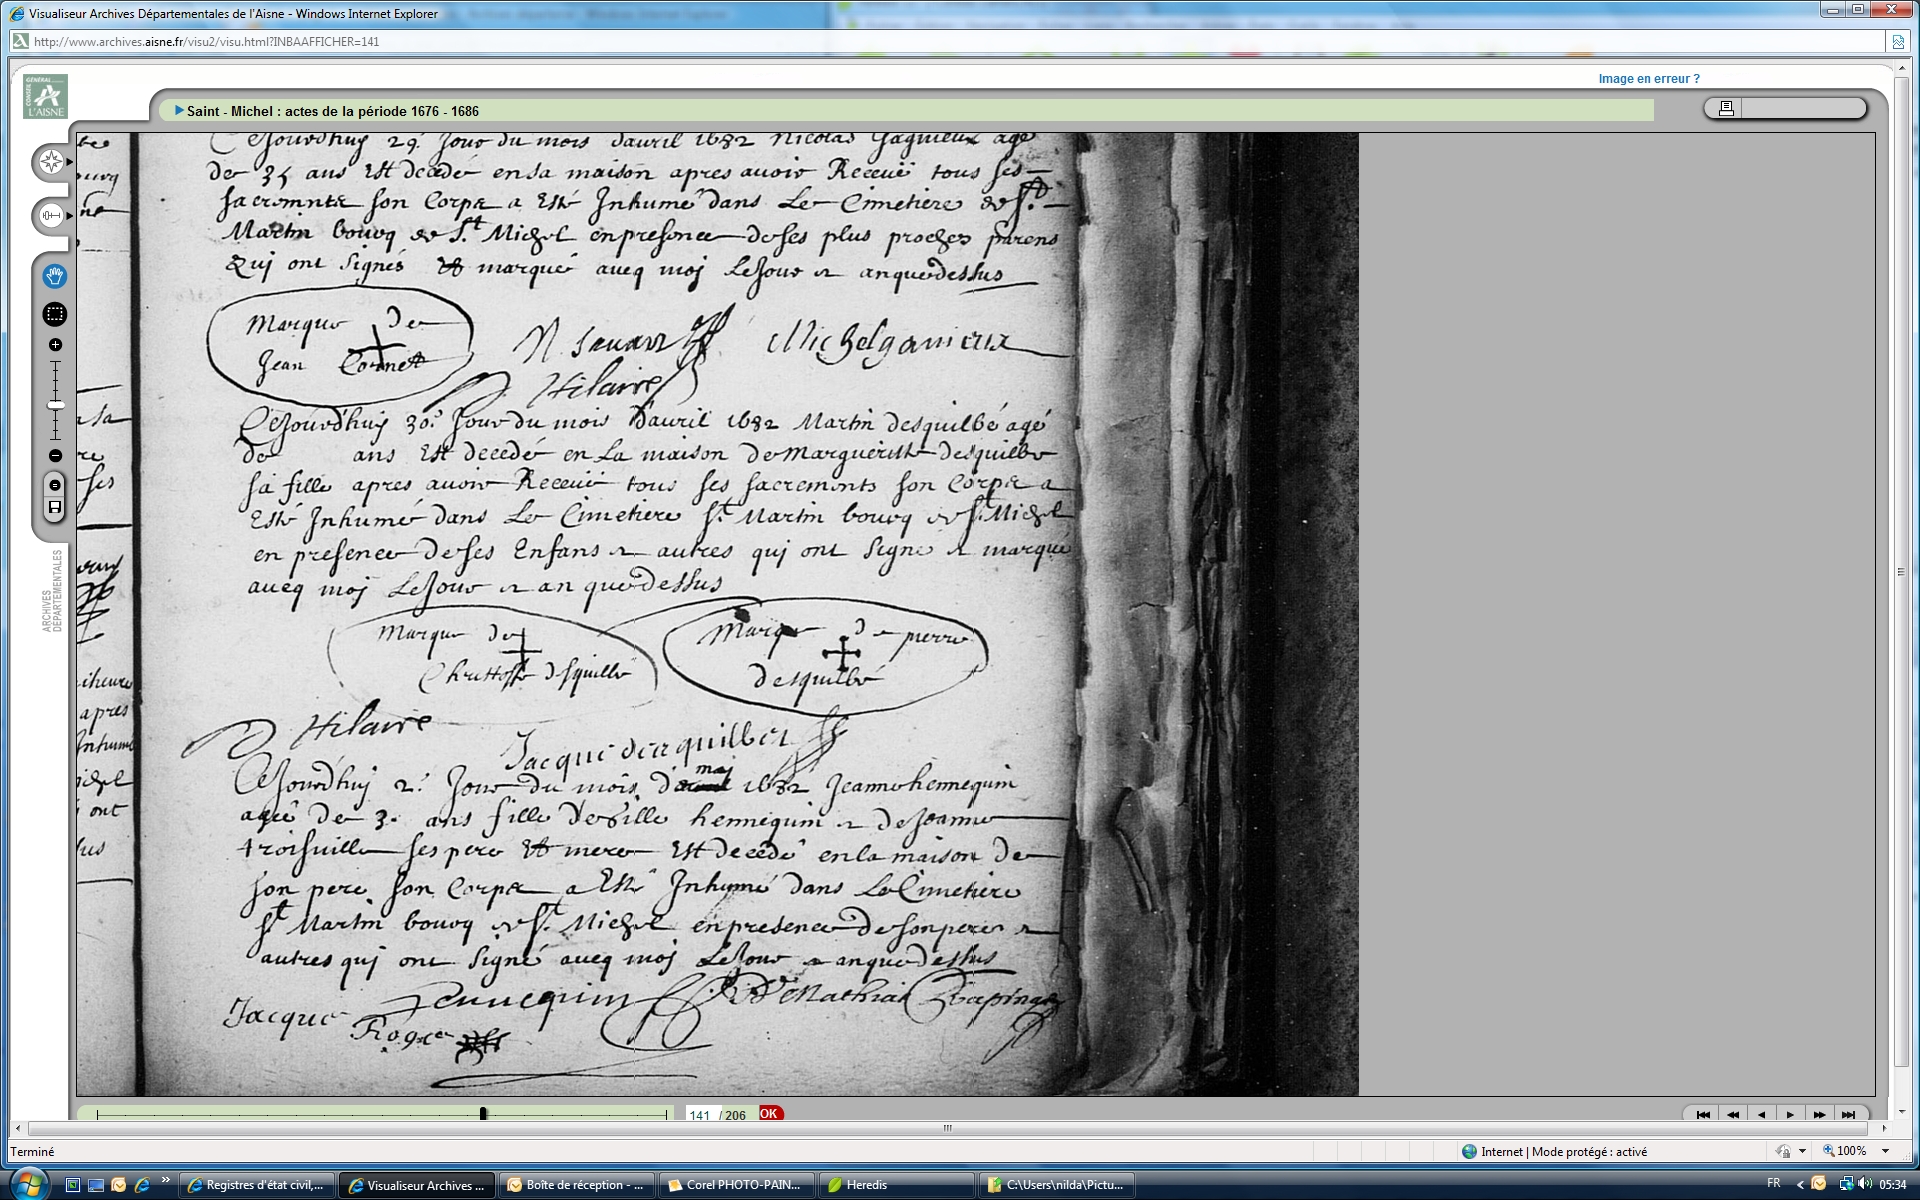 Visualiseur Archives Départementales de l'Aisne - Windows Internet Explorer
http://www.archives.aisne.fr/visu2/visu.html?INBAAFFICHER=141
Image en erreur ?
GÉNÉRAL
CONSEIL
L'AISNE
Saint - Michel : actes de la période 1676 - 1686
Cejourdhuy 29e Jour du mois davril 1682 Nicolas Gagnieux agé
de 35 ans Est decedé en sa maison apres avoir Receuë tous ses
sacremnts son Corps a Esté Inhumé dans Le Cimetiere de St
Martin bourg de St Michel en presence de ses plus proches parens
Qui ont signés et marqué avecq moy Le Jour et an que dessus
Marque de
Jean Cornet
N. savart Michel ganieux
Hilaire
Cejourdhuy 30e Jour du mois davril 1682 Martin desquilbé agé
de ans Est decedé en La maison de Margueritte desquilbe
sa fille apres avoir Receuë tous ses sacremnts son Corps a
Esté Inhumé dans Le Cimetiere St Martin bourg de St Michel
en presence de ses Enfans et autres qui ont signé et marqué
avecq moy Le Jour et an que dessus
Marque de
Christoffe desquilbe
Marque de pierre
desquilbé
Hilaire
Jacque
Cejourdhuy 2e Jour du mois de may 1682 Jeanne hennequin
agée de 3. ans fille de Gille hennequin et de Jeanne
troisville ses pere et mere Est decedé en la maison de
son pere son Corps a Esté Inhumé dans Le Cimetiere
St Martin bourg de St Michel en presence de son pere et
autres qui ont signé avecq moy Le Jour et an que dessus
Jacque hennequin
Roger
ARCHIVES
DÉPARTEMENTALES
141 / 206 OK
Terminé
Internet | Mode protégé : activé
100%
Registres d'état civil,...
Visualiseur Archives ...
Boîte de réception - ...
Corel PHOTO-PAIN...
Heredis
C:\Users\nilda\Pictu...
FR
05:34